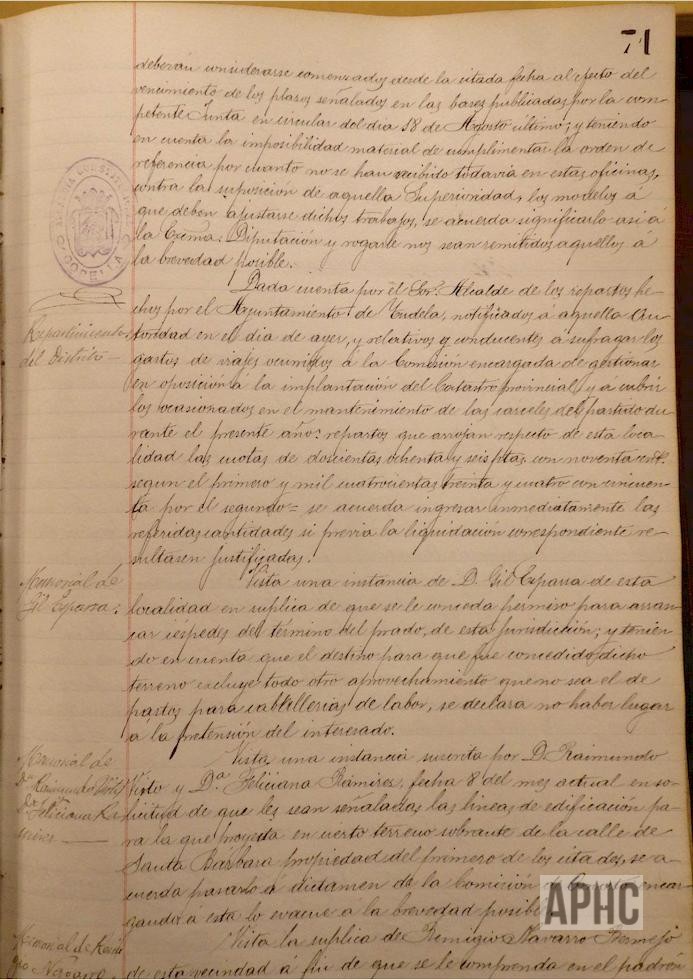 71
deberán considerarse comenzados desde la citada fecha al efecto del
vencimiento de los plasos señalados en las bases publicadas por la com-
petente Junta en circular del dia 18 de Agosto último; y teniendo
en cuenta la imposibilidad material de cumplimentar la orden de
referencia por cuanto no se han recibido todavia en estas oficinas,
contra la suposicion de aquella Superioridad, los modelos á
que deben ajustarse dichos trabajos, se acuerda significarlo asi á
la Excma. Diputación y rogarle nos sean remitidos aquellos á
la brevedad posible.
Repartimientos
del Distrito
Dada cuenta por el Sor. Alcalde de los repartos he-
chos por el Ayuntamiento de Tudela, notificados á aquella Au-
toridad en el dia de ayer, y relativos y conducentes á sufragar los
gastos de viajes ocurridos á la Comisión encargada de gestionar
en oposición á la implantación del Catastro provincial, y a cubrir
los ocasionados en el mantenimiento de las carceles del partido du-
rante el presente año: repartos que arrojan respecto de esta loca-
lidad las cuotas de doscientas ochenta y seis ptas. con noventa cnts.
segun el primero y mil cuatrocientas treinta y cuatro con cincuen-
ta por el segundo= se acuerda ingresar inmediatamente las
referidas cantidades si previa la liquidación correspondiente re-
sultasen justificadas.
Memorial de
Gil Esparza.
Vista una instancia de D. Gil Esparza de esta
localidad en suplica de que se le conceda permiso para arran-
car céspedes del término del prado, de esta jurisdicción; y tenien-
do en cuenta que el destino para que fue concedido dicho
terreno excluye todo otro aprovechamiento que no sea el de
pastos para caballerias de labor, se declara no haber lugar
á la pretensión del interesado.
Memorial de
Dn. Raimundo
Da. Feliciana Ra-
mires
Vista una instancia suscrita por D. Raimundo
Visto y Da. Feliciana Ramires, fecha 8 del mes actual en so-
licitud de que les sean señaladas las lineas de edificación pa-
ra la que proyecta en cierto terreno sobrante de la calle de
Santa Bárbara propiedad del primero de los citados, se a-
cuerda pasarlo á dictamen de la Comisión encar-
gando á esta lo evacue á la brevedad posible
APHC
Memorial de Remi-
gio Navarro
Vista la suplica de Remigio Navarro Bermejo
de esta vecindad á fin de que se le comprenda en el padrón